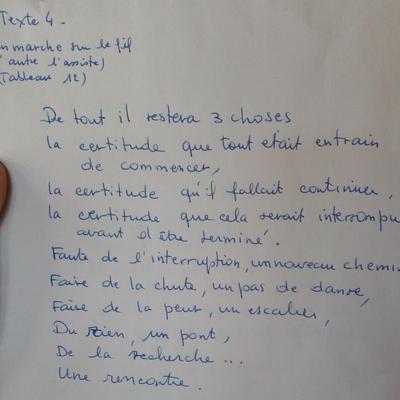 Texte 4.
n marche sur le fil
autre l'assiste)
(Tableau 12)
De tout il restera 3 choses
la certitude que tout était entrain
de commencer,
la certitude qu'il fallait continuer,
la certitude que cela serait interrompu
avant d'être terminé.
Faute de l'interruption, un nouveau chemin
Faire de la chute, un pas de danse,
Faire de la peur, un escalier,
Du rien, un pont,
De la recherche...
Une rencontre.